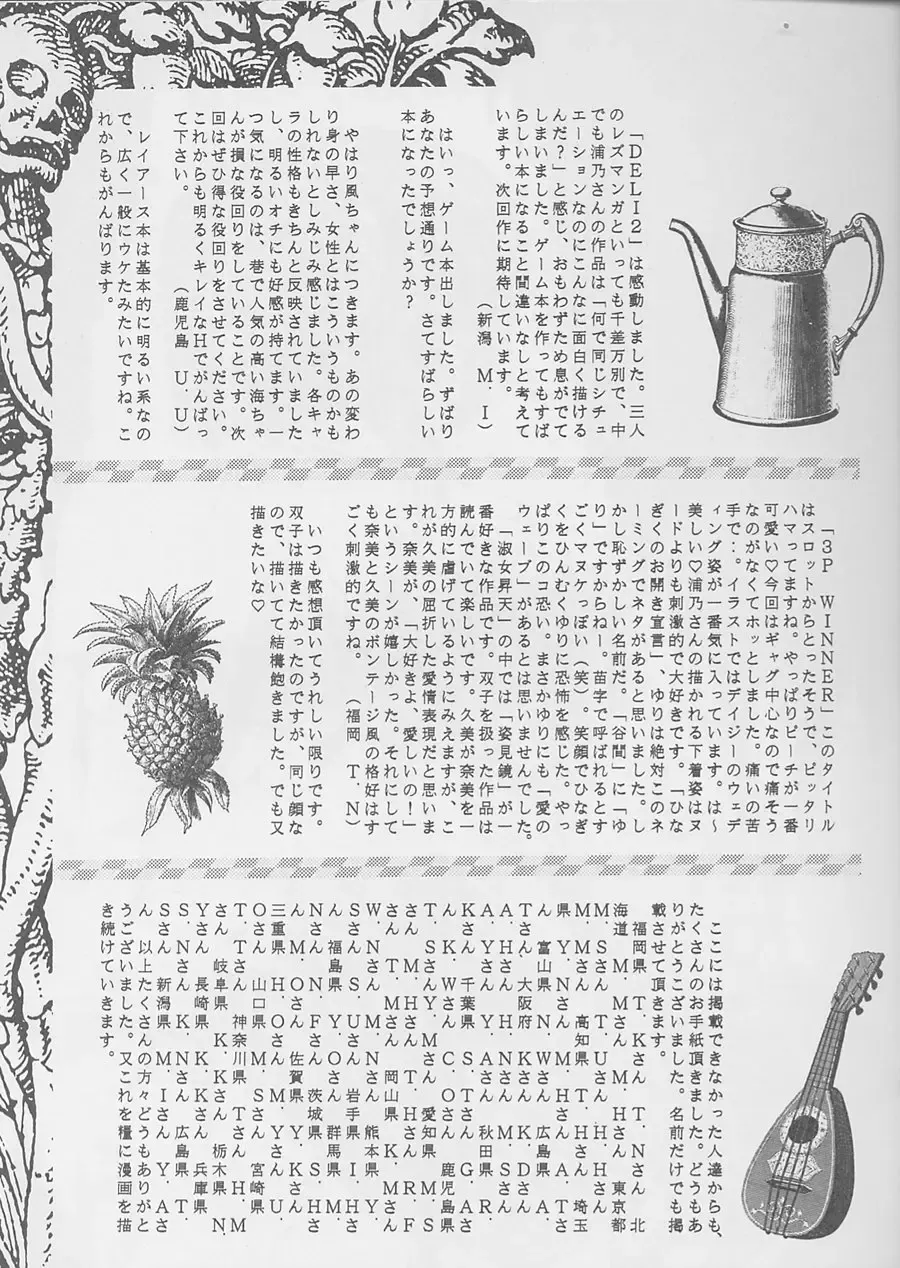 「DELI2」は感動しました。三人
のレズマンガといっても千差万別で、中
でも浦乃さんの作品は「何で同じシチュ
エーションなのにこんなに面白く描ける
んだ？」と感じ、おもわずため息がでて
しまいました。ゲーム本を作ってもすば
らしい本になること間違いなしと考えて
います。次回作に期待しています。
（新潟　M．I）
はいっ、ゲーム本出しました。ずばり
あなたの予想通りです。さてすばらしい
本になったでしょうか？
やはり風ちゃんにつきます。あの変わ
り身の早さ、女性とはこういうものかも
しれないとしみじみ感じました。各キャ
ラの性格もきちんと反映されていました
し、明るいオチにも好感が持てます。一
つ気になるのは、巷で人気の高い海ちゃ
んが損な役回りをしていることです。次
回はぜひ得な役回りをさせてください。
これからも明るくキレイなHでがんばっ
て下さい。　　　（鹿児島　U．U）
レイアース本は基本的に明るい系なの
で、広く一般にウケたみたいですね。こ
れからもがんばります。
「3P　WINNER」このタイトル
はスロットからとったそうで、ピッタリ
ハマってますね。やっぱりピーチが一番
可愛い♡今回はギャグ中心なので痛そう
なのがなくてホッとしました。痛いの苦
手で‥。イラストではデイジーのウェデ
ィング姿が一番気に入っています。は～
美しい♡浦乃さんの描かれる下着姿はヌ
ードよりも刺激的で大好きです。「ひな
ぎくのお開き宣言」、ゆりは絶対このネ
ーミングでネタがあると思いました。し
かし恥ずかしい名前だ。「谷間」に「ゆ
り」ですからねー。苗字で呼ばれるとす
ごくマヌケっぽい（笑）。笑顔でひなぎ
くをひんむくゆりに恐怖を感じた。やっ
ぱりこのコ恐い。まさかゆりにも「愛の
ウェーブ」があるとは思いませんでした。
「淑女昇天」の中では「姿見鏡」が一
番好きな作品です。双子を扱った作品は
読んでいて楽しいです。久美が奈美を一
方的に虐げているようにみえますが、こ
れが久美の屈折した愛情表現だと思いま
す。奈美が、「大好きよ、愛しいの！」
というシーンが嬉しかった。それにして
も奈美と久美のボンテージ風の格好はす
ごく刺激的ですね。　　（福岡　T．N）
いつも感想頂いてうれしい限りです。
双子は描きたかったのですが、同じ顔な
ので、描いてて結構飽きました。でも又
描きたいな♡
ここには掲載できなかった人達からも、
たくさんのお手紙頂きました。どうもあ
りがとうございました。名前だけでも掲
載させて頂きます。
福岡県　T．Kさん　T．Nさん　北
海道　M．Mさん　M．Hさん　東京都
M．Sさん　T．Uさん　H．Hさん
M．Mさん　高知県　T．Hさん　埼玉
県　Y．Nさん　M．Hさん　A．Tさ
ん　富山県　N．Wさん　広島県　A．
T．さん　大阪府　K．Kさん　D．A
A．Hさん　T．Nさん　M．Sさん
A．Yさん　Y．Yさん　秋田県　R．
Kさん　千葉県　S．Aさん　G．Aさ
ん　K．Wさん　C．Oさん　鹿児島県
T．Sさん　Y．Mさん　愛知県　M．S
さん　T．Hさん　T．Hさん　R．F
さん　T．Mさん　岡山県　K．Mさん
W．Nさん　M．Nさん　熊本県　Y．
Sさん　S．Uさん　岩手県　I．Hさ
ん　福島県　Y．Oさん　群馬県　M．
N．Mさん　N．Fさん　茨城県　S．Hさ
ん　M．Oさん　佐賀県　Y．Kさん
三重県　H．Oさん　M．Yさん　U．
Oさん　山口県　M．Sさん　宮崎県
T．Tさん　神奈川県　T．Tさん　H．M
さん　岐阜県　K．Kさん　栃木県　N．
Yさん　長崎県　K．Kさん　兵庫県
S．Nさん　K．Nさん　広島県　T．
Sさん　新潟県　M．Iさん　Y．Aさ
ん　以上たくさんの方々どうもありがと
うございました。又これを糧に漫画を描
き続けていきます。